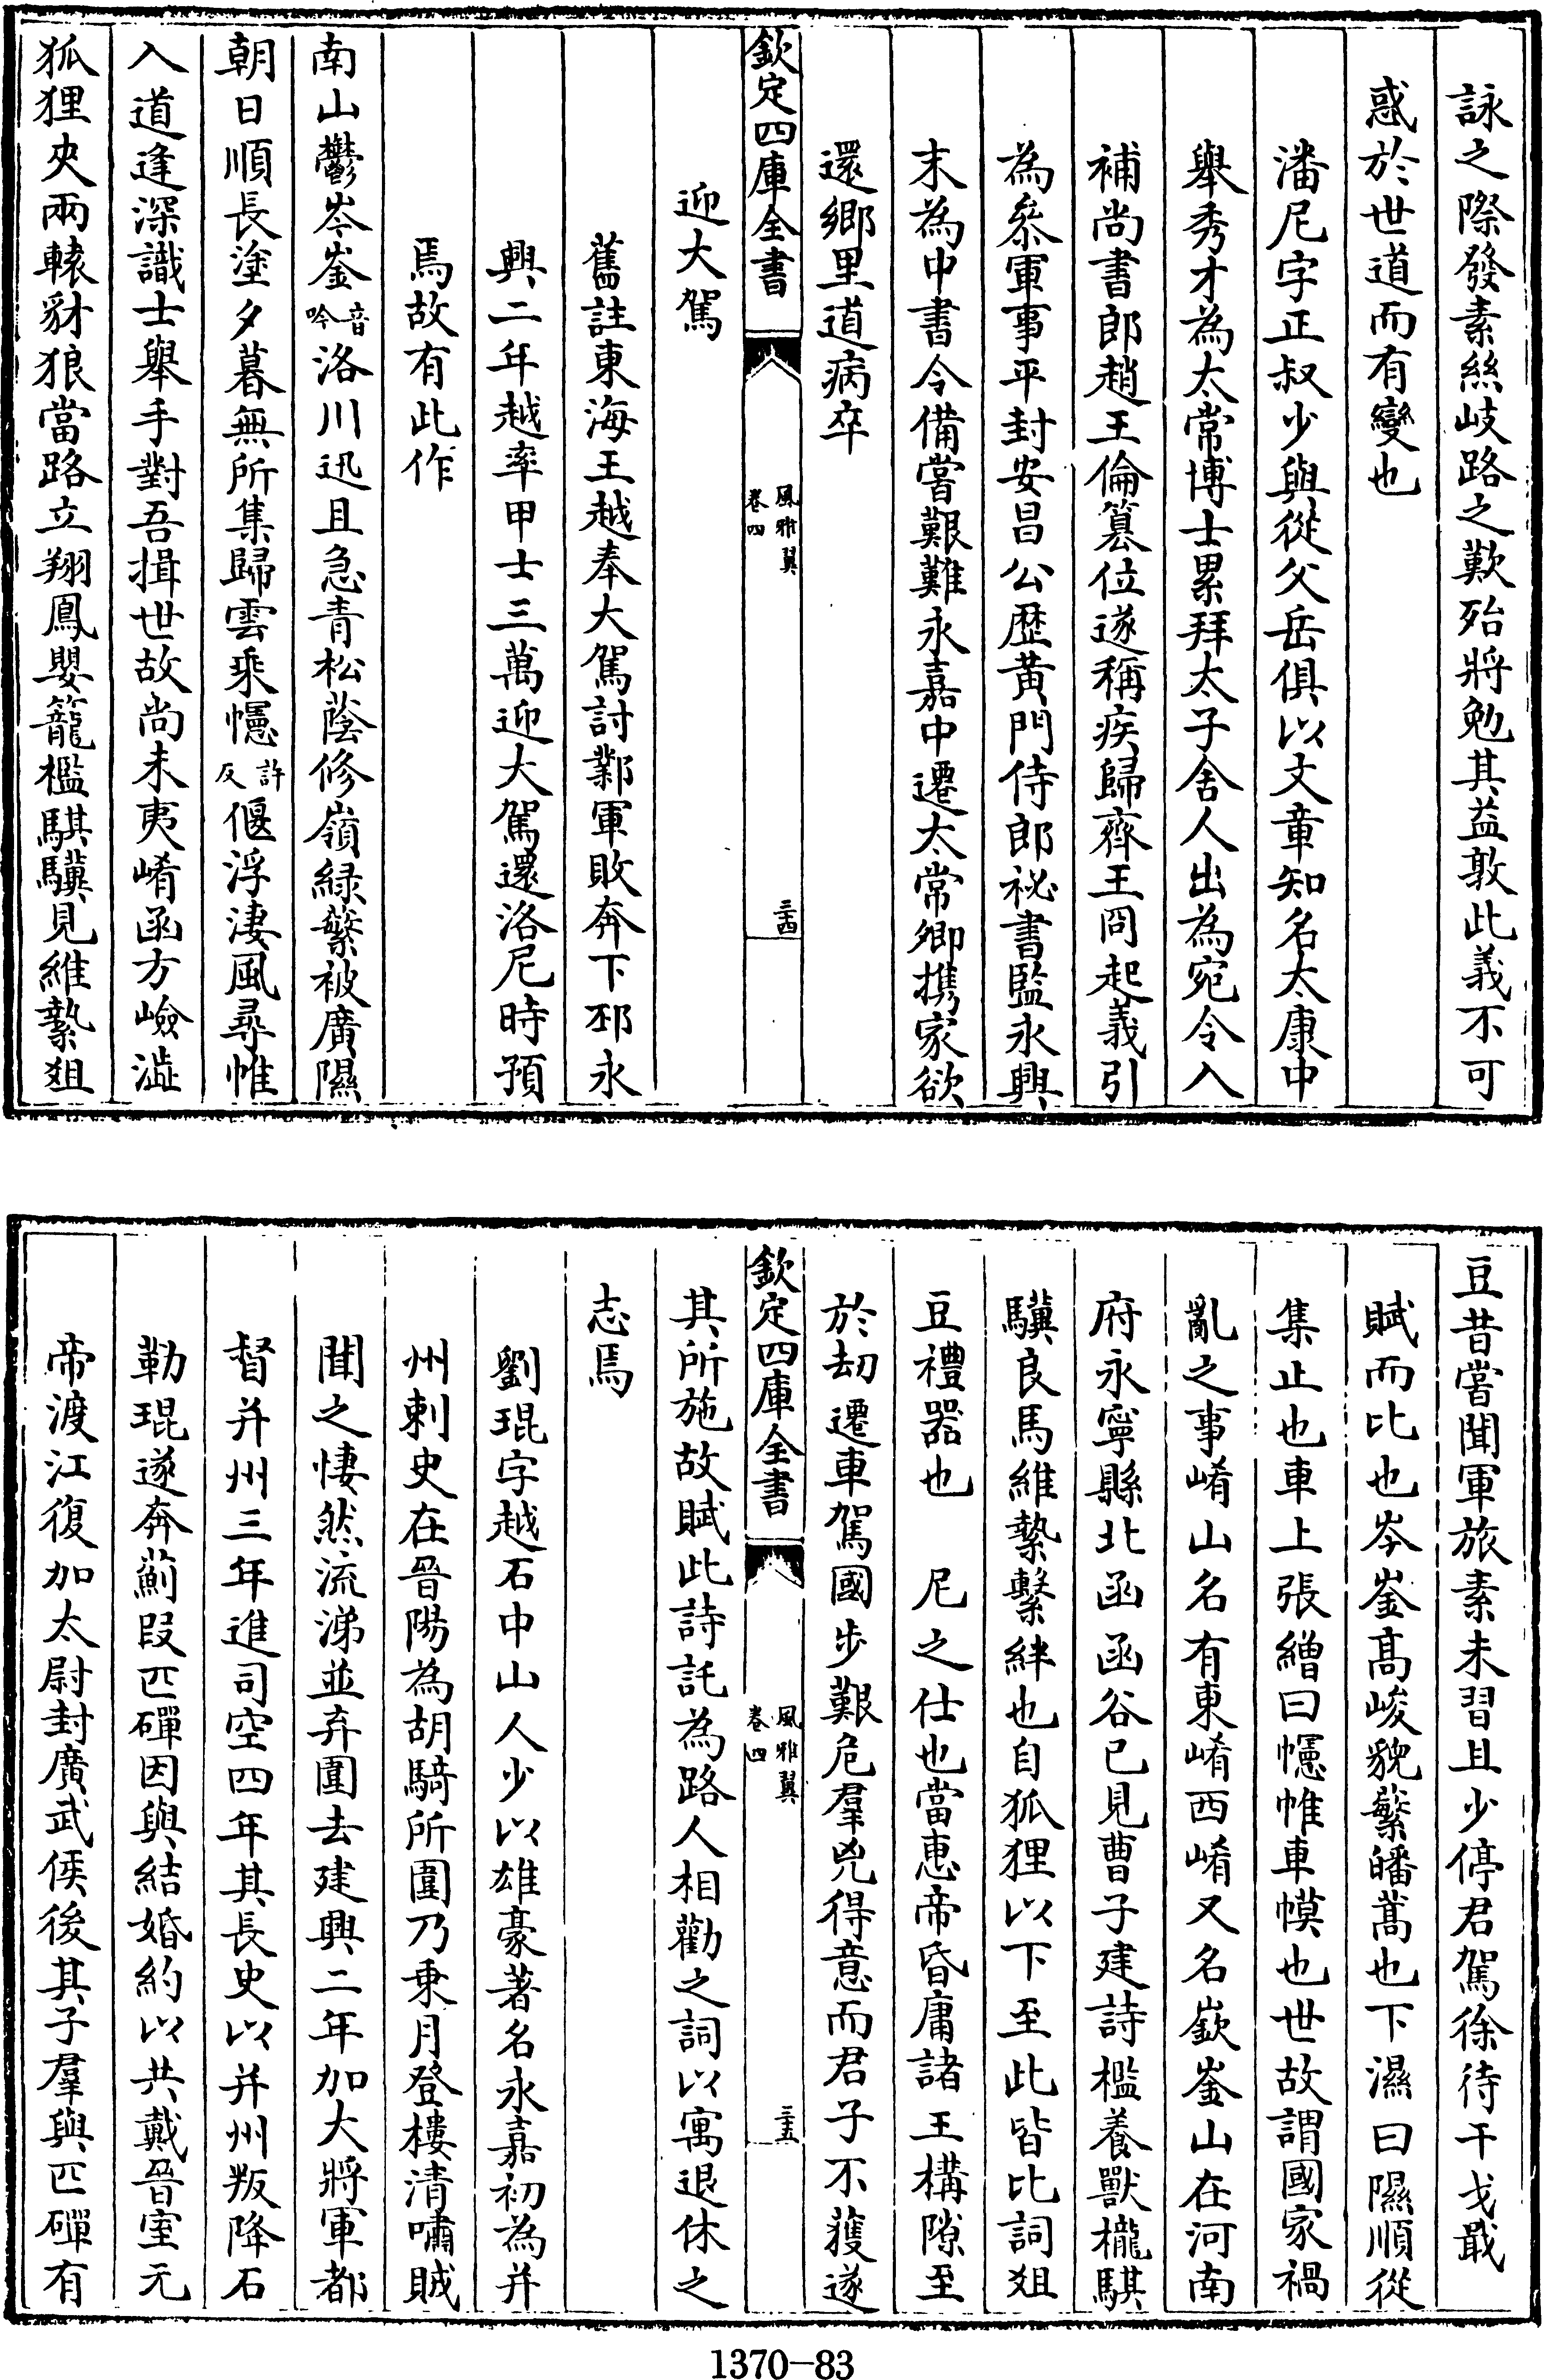 詠之際發素絲岐路之歎殆將勉其益敦此義不可
惑於世道而有變也
潘尼字正叔少與從父岳俱以文章知名太康中
舉秀才為太常博士累拜太子舍人出為宛令入
補尚書郎趙王倫篡位遂稱疾歸齊王冏起義引
為叅軍事平封安昌公歴黃門侍郎祕書監永興
末為中書令備嘗艱難永嘉中遷太常卿携家欲
還鄉里道病卒
欽定四庫全書
風雅翼
卷四
三四
迎大駕
舊註東海王越奉大駕討鄴軍敗奔下邳永
興二年越率甲士三萬迎大駕還洛尼時預
焉故有此作
南山鬱岑崟音吟洛川迅且急青松蔭修嶺緑蘩被廣隰
朝日順長塗夕暮無所集歸雲乘幰許反偃浮淒風尋帷
入道逢深識士舉手對吾揖世故尚未夷崤函方嶮澁
狐狸夾兩轅豺狼當路立翔鳳嬰籠檻騏驥見維縶俎
豆昔嘗聞軍旅素未習且少停君駕徐待干戈戢
賦而比也岑崟高峻貌蘩皤蒿也下濕曰隰順從
集止也車上張繒曰幰帷車幙也世故謂國家禍
亂之事崤山名有東崤西崤又名嶔崟山在河南
府永寧縣北函函谷已見曹子建詩檻養獸櫳騏
驥良馬維縶繫絆也自狐狸以下至此皆比詞俎
豆禮器也　尼之仕也當惠帝昏庸諸王構隙至
於刼遷車駕國步艱危羣兇得意而君子不獲遂
欽定四庫全書
風雅翼
卷四
三五
其所施故賦此詩託為路人相勸之詞以寓退休之
志焉
劉琨字越石中山人少以雄豪著名永嘉初為并
州刺史在晉陽為胡騎所圍乃乗月登樓清嘯賊
聞之悽然流涕並弃圍去建興二年加大將軍都
督并州三年進司空四年其長史以并州叛降石
勒琨遂奔薊段匹磾因與結婚約以共戴晉室元
帝渡江復加太尉封廣武侯後其子羣與匹磾有
1370-83